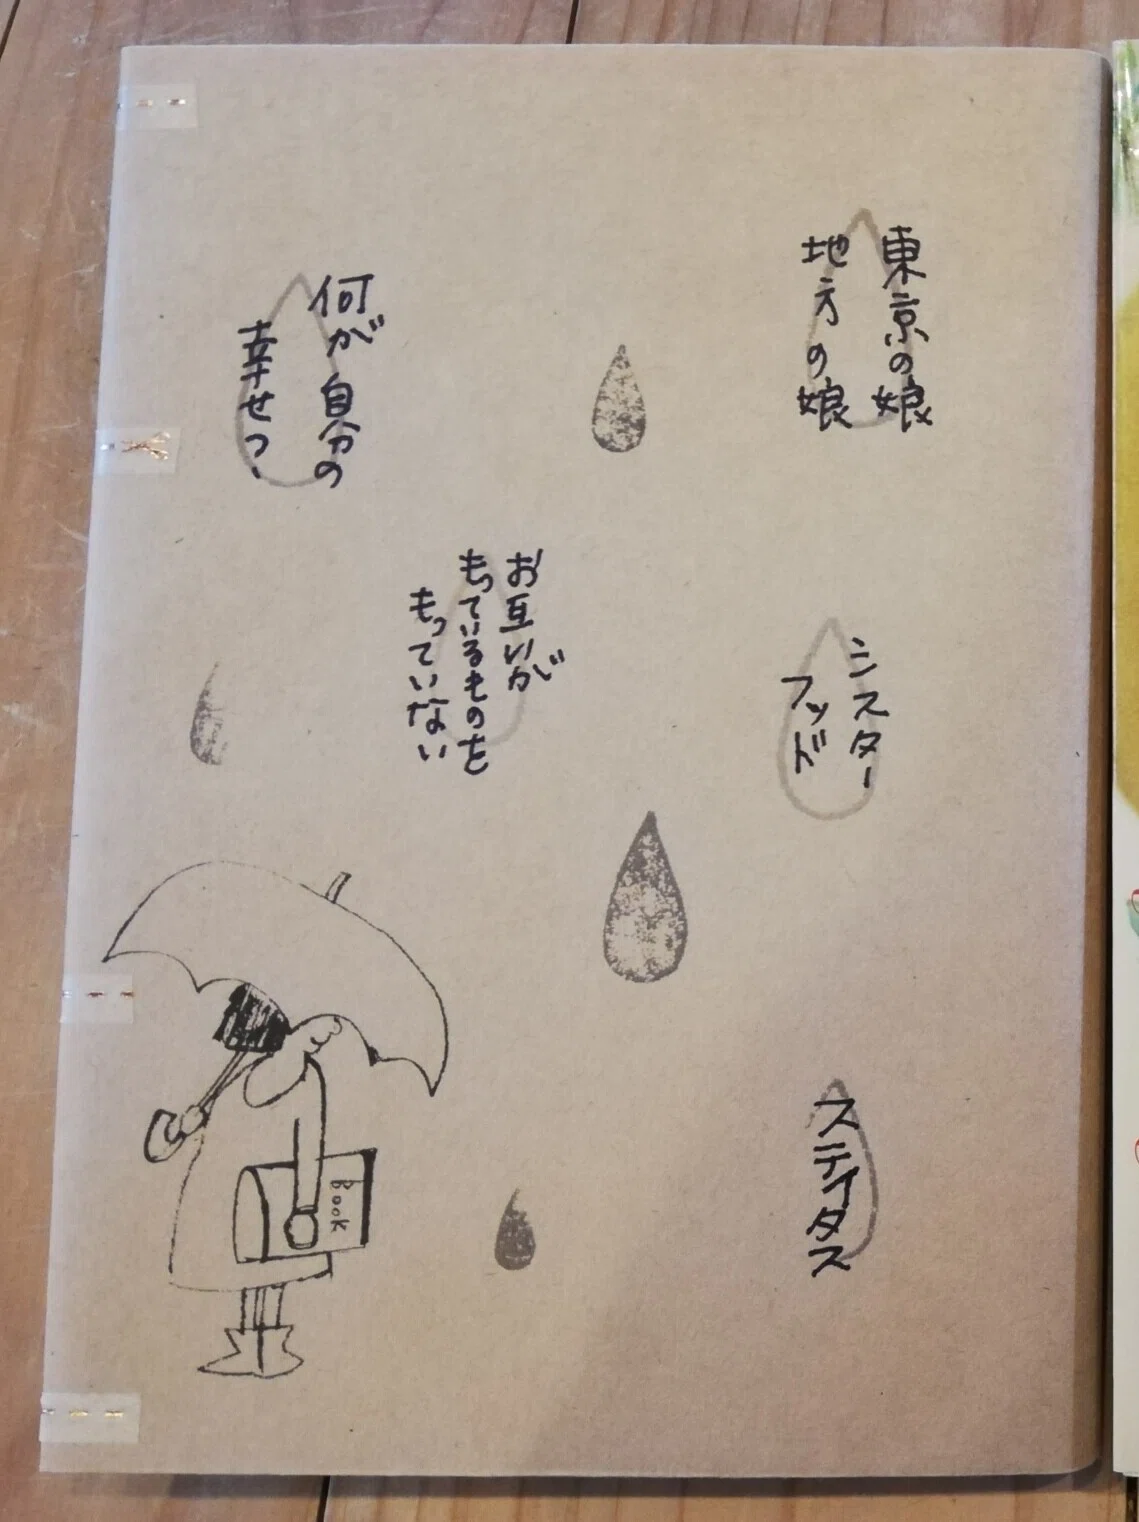 東京の娘
地方の娘
シスター
フッド
ステイタス
お互いが
もっているものを
もっていない
何が自分の
幸せっ、
Book